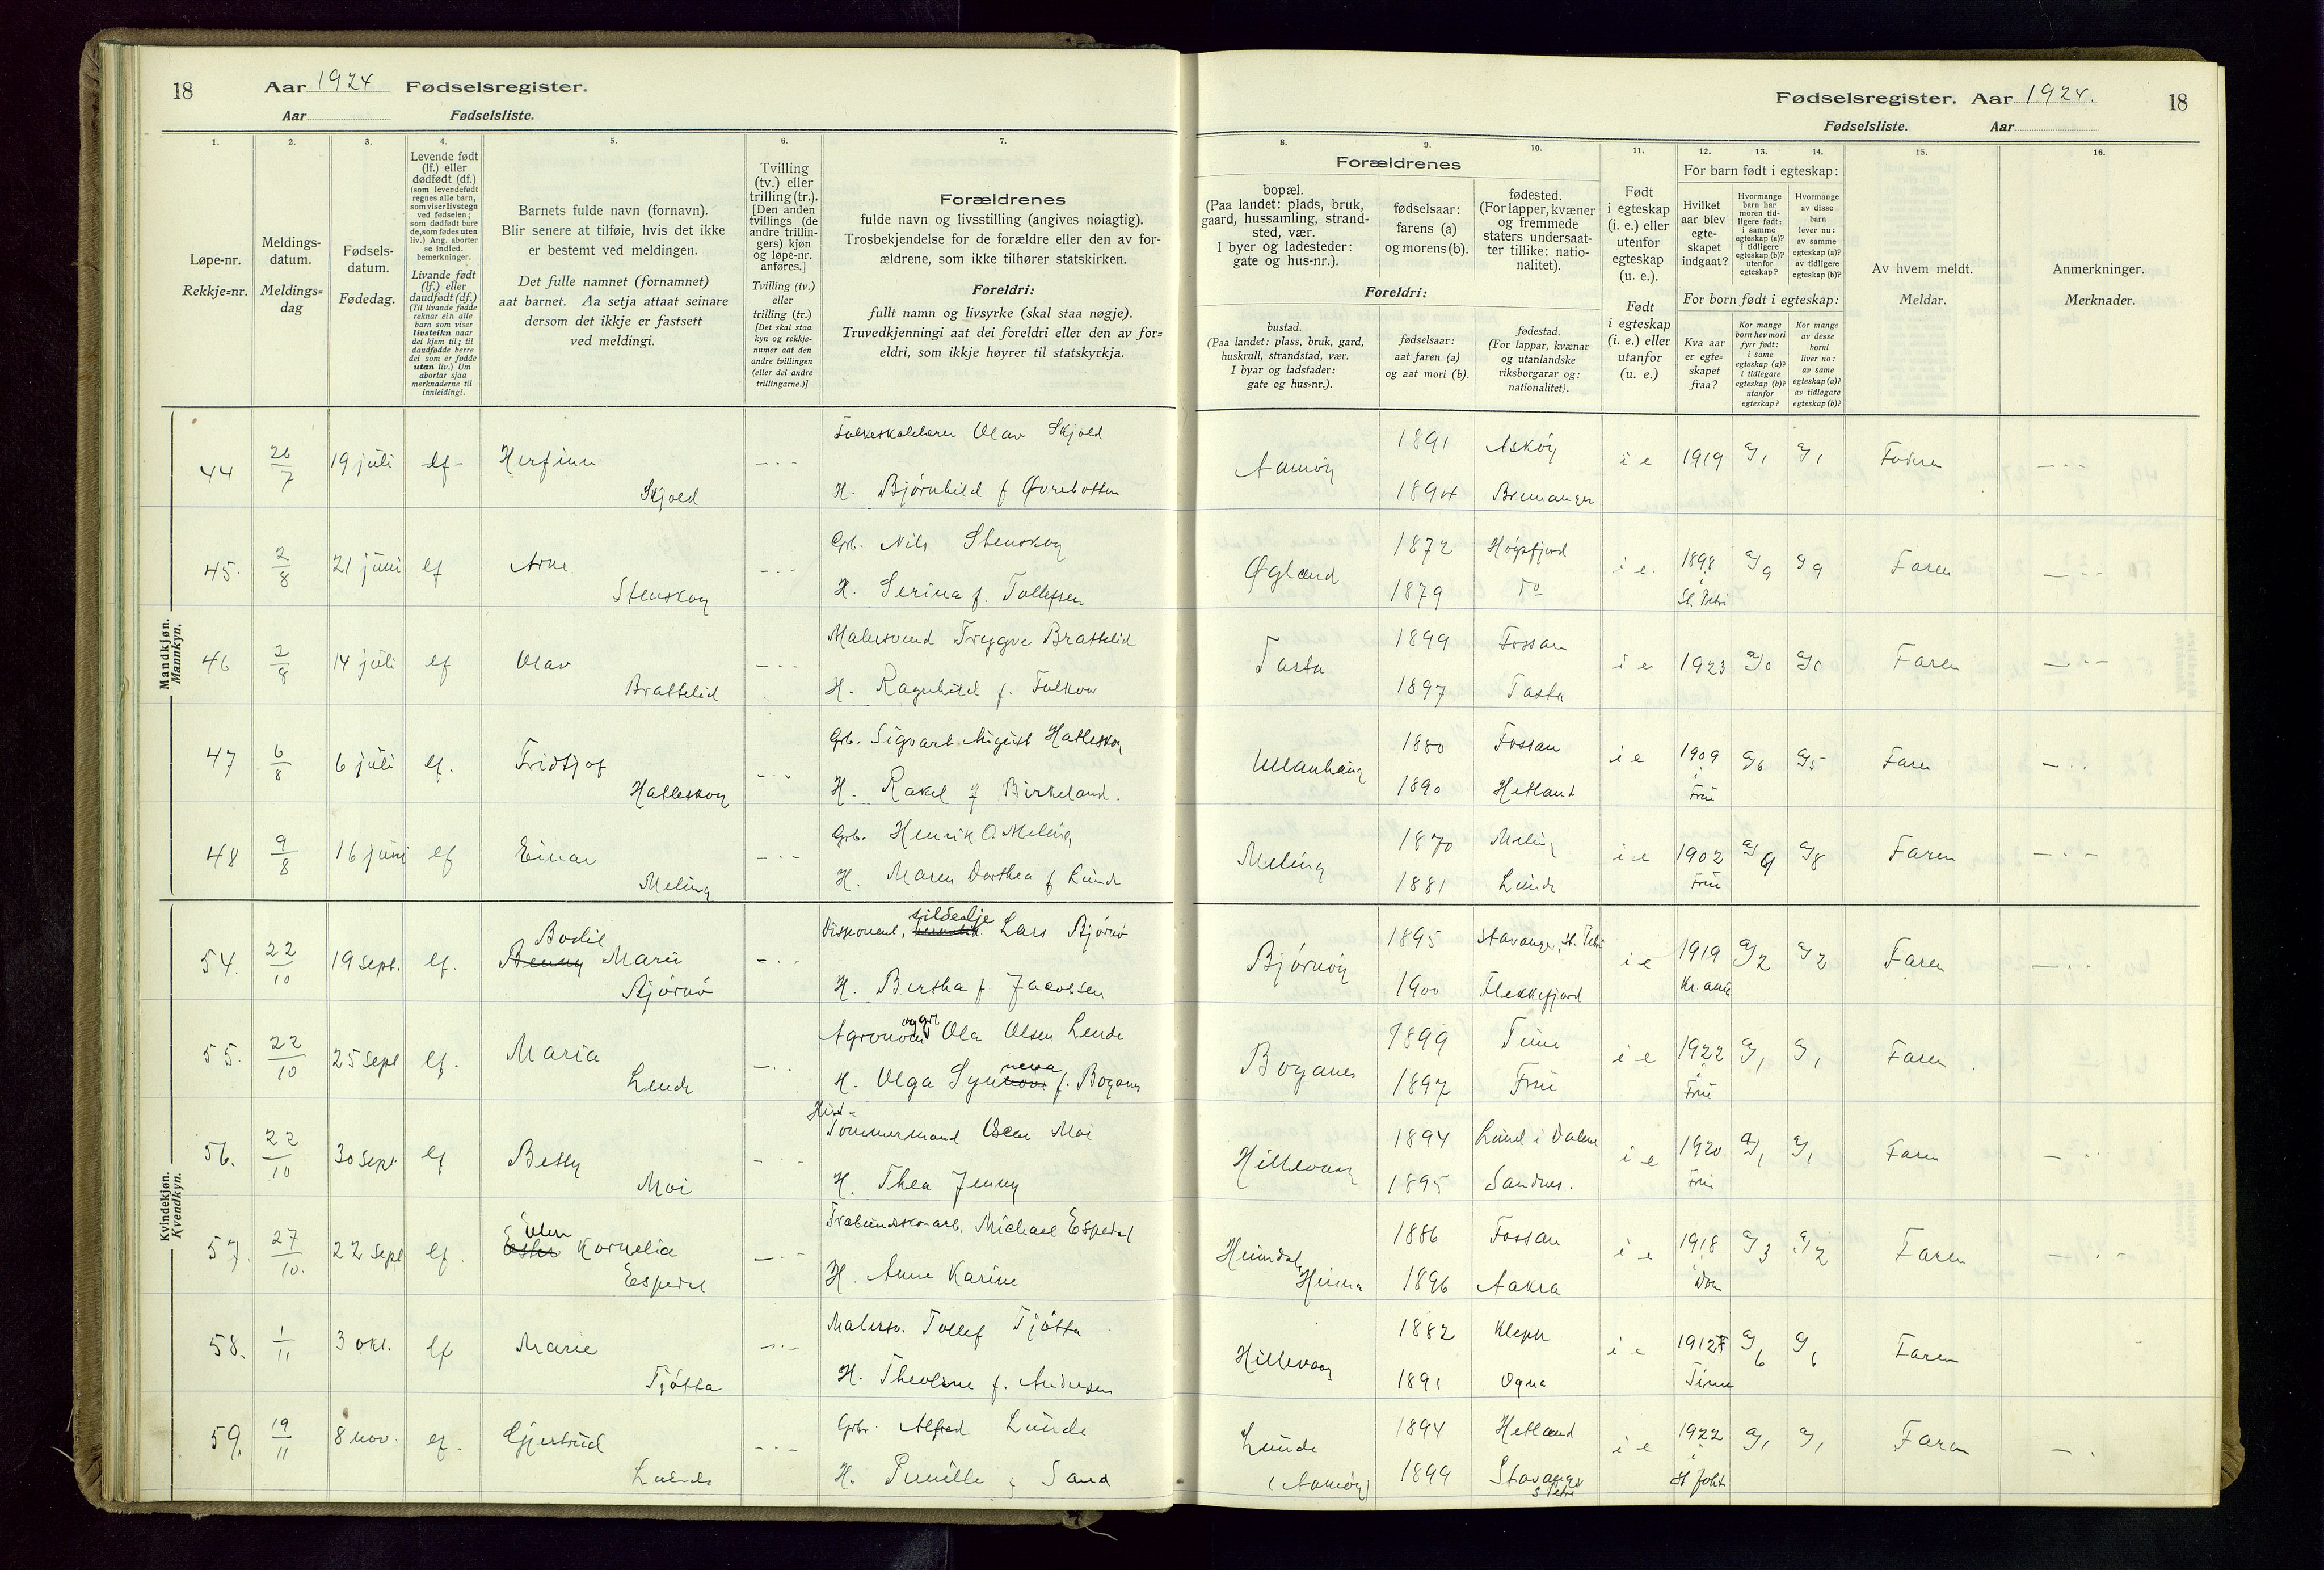 18 Aar 1924 Fødselsregister.
Aar Fødselsliste.
1. 2. 3. 4. 5. 6. 7.
Løpe-nr.
Rekkje=nr.
Meldings-
datum.
Meldings=
dag
Fødsels-
datum.
Fødedag.
Levende født
(lf.) eller
dødfødt (df.)
(som levendefødt
regnes alle barn,
som viser livstegn
ved fødselen;
som dødfødt bare
de, som fødes uten
liv.) Ang. aborter
se indled.
bemerkninger.
Livande født
(lf.) eller
daudfødt (df.)
(Til livande fødde
reknar ein alle
barn som viser
livsteikn naar
dei kjem til; til
daudfødde berre
dei som er fødde
utan liv.) Um
abortar sjaa
merknaderne til
innleidingi.
Barnets fulde navn (fornavn).
Blir senere at tilføie, hvis det ikke
er bestemt ved meldingen.
Det fulle namnet (fornamnet)
aat barnet. Aa setja attaat seinare
dersom det ikkje er fastsett
ved meldingi.
Tvilling
(tv.) eller
trilling (tr.).
[Den anden
tvillings (de
andre trillin-
gers) kjøn
og løpe-nr.
anføres.]
Tvilling (tv.)
eller
trilling (tr.)
[Det skal staa
kyn og rekkje-
numer aat den
andre tvillingen
(eller dei andre
trillingarne.)]
Forældrenes
fulde navn og livsstilling (angives nøiagtig).
Trosbekjendelse for de forældre eller den av for-
ældrene, som ikke tilhører statskirken.
Foreldri:
fullt namn og livsyrke (skal staa nøgje).
Truvedkjenningi aat dei foreldri eller den av for=
eldri, som ikkje høyrer til statskyrkja.
Mandkjøn.
Mannkyn.
44 26/7 19 juli lf - Herfinn Skjold Folkeskolelærer Olav Skjold
H. Bjørnhild f Øvrebotten
45. 2/8 21 juni lf Arne Stenskog Grb. Nils Stenskog
H. Serina f. Tollefsen
46 2/8 14 juli lf Olav Brattelid Malersvend Trygve Brattelid
H. Ragnhild f. Falkor
47 6/8 6 juli lf. Fridtjof Halleskog Grb. Sigvart August Halleskog
H. Rakel f Birkeland.
48 9/8 16 juni lf Einar Meling Grb. Henrik O. Meling
H. Maren Dorthea f Lunde
Kvindekjøn.
Kvendkyn.
54. 22/10 19 sept. lf. Bodil Marie Bjørnø Diskonent, sildeolje Lars Bjørnø
H. Bertha f. Jacobsen
55. 22/10 25 sept lf. Maria Lende Agronom og gbr Ola Olsen Lende
H. Olga Synneva f. Boganes
56. 22/10 30 sept lf Betsy Moi Tømmermand Oscar Moi
H. Thea Jenny
57. 27/10. 22 sept lf. Elen Kornelia Espedal Michael Espedal
H. Anne Karine
58. 1/11 3 okt. lf Marie Tjøtta Malersv. Tollef Tjøtta
H. Theoline f. Andersen
59. 19/11 8 nov. lf. Gjertrud Lunde Grbr. Alfred Lunde
H. Pernille f Sand
Fødselsregister. Aar 1924. 18
Fødselsliste. Aar
8. 9. 10. 11. 12. 13. 14. 15. 16.
Forældrenes
bopæl.
(Paa landet: plads, bruk,
gaard, hussamling, strand-
sted, vær.
I byer og ladesteder:
gate og hus-nr.).
fødselsaar:
farens (a)
og morens (b).
fødested.
(For lapper, kvæner
og fremmede
staters undersaat-
ter tillike: natio-
nalitet).
Foreldri:
bustad.
(Paa landet: plass, bruk, gard,
huskrull, strandstad, vær.
I byar og ladstader:
gate og hus=nr.).
fødselsaar:
aat faren (a)
og aat mori (b).
fødestad.
(For lappar, kvænar
og utanlandske
riksborgarar og:
nationalitet).
Født
i egteskap
(i. e.) eller
utenfor
egteskap
(u. e.).
Født
i egteskap
(i. e.) eller
utanfor
(u. e.)
For barn født i egteskap:
Hvilket
aar blev
egte-
skapet
indgaat?
Hvormange
barn har
moren tid-
ligere født:
i samme
egteskap (a)?
i tidligere
egteskap (b)?
utenfor
egteskap?
Hvormange
av disse
barn
lever nu:
av samme
egteskap (a)?
av tidligere
egteskap (b)?
For born født i egteskap:
Kva aar
er egte=
skapet
fraa?
Kor mange
born hev mori
fyrr født:
i same
egteskap (a)?
i tidlegare
egteskap (b)?
utanfor
egteskap?
Kor mange
av desse
borni
liver no:
av same
egteskap (a)?
av tidlegare
egteskap (b)?
Av hvem meldt.
Meldar.
Anmerkninger.
Merknader.
Aamøy 1891 Askøy i e 1919 a/1 a/1 Faren
1894 Bremanger
Øgland 1872 Høgsfjord i e. 1898 a/9 a/9 Faren
1879 Do i St. Petri
Tasta 1899 Fossan i e 1923 a/0 a/0 Faren
1897 Tasta
Ullanhaug 1880 Fossan i e 1909 a/6 a/5 Faren
1890 Hetland i Frue
Meling 1870 Meling i e 1902 a/9 a/8 Faren
1881 Lunde Frue
Bjørnøy 1895 Stavanger, St. Petri i e 1919 a/2 a/2 Faren
1900 Flekkefjord Kr. and
Boganes 1899 Time i e 1922 a/1 a/1 Faren
1897 Frue i Frue
Hillevaag 1894 Lund i Dalene i e 1920 a/1 a/1 Faren
1895 Sandnes. Frue
Heimdal, Hinna 1886 Fossan i e 1918 a/3 a/2 Faren
1896 Aakra i Dom
Hillevaag 1882 Klepp i e 1912 a/6 a/6 Faren
1891 Ogna Time
Lunde 1894 Hetland i e 1922 a/1 a/1 Faren
(Aamøy) 1899 Stavanger S. Petri i St Joht